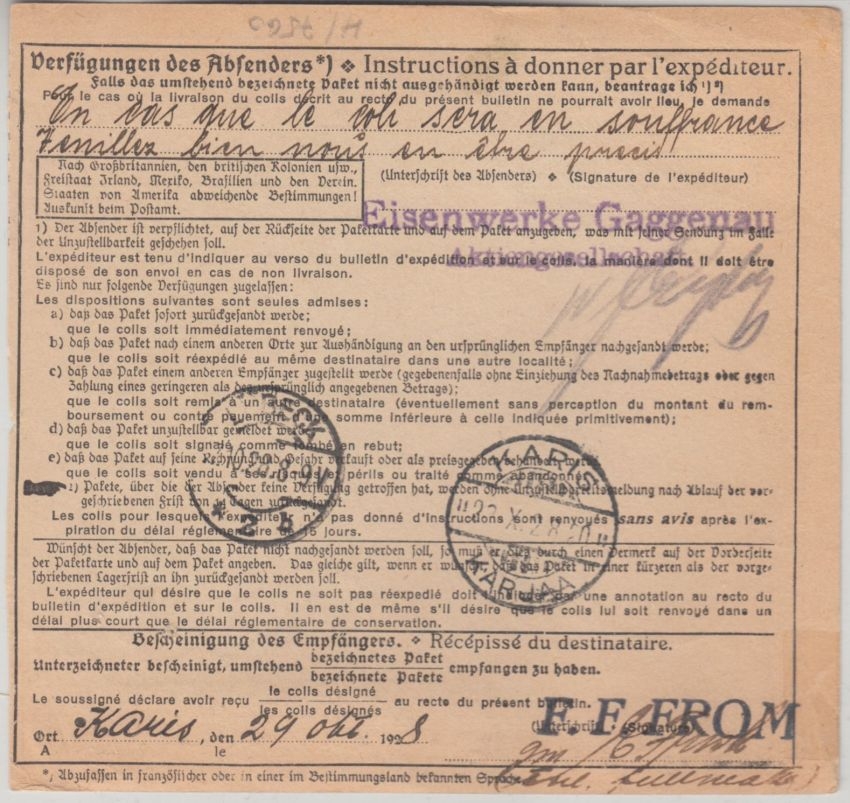 Verfügungen des Absenders*) ❖ Instructions à donner par l'expéditeur.
Falls das umstehend bezeichnete Paket nicht ausgehändigt werden kann, beantrage ich ¹) *)
Pour le cas où la livraison du colis décrit au recto du présent bulletin ne pourrait avoir lieu, je demande
En cas que le coli sera en souffrance
Veuillez bien nous en être precis
Nach Großbritannien, den britischen Kolonien usw., Freistaat Irland, Mexiko, Brasilien und den Verein. Staaten von Amerika abweichende Bestimmungen! Auskunft beim Postamt.
(Unterschrift des Absenders) ❖ (Signature de l'expéditeur)
Eisenwerke Gaggenau
Aktiengesellschaft
1) Der Absender ist verpflichtet, auf der Rückseite der Paketkarte und auf dem Paket anzugeben, was mit seiner Sendung im Falle
der Unzustellbarkeit geschehen soll.
L'expéditeur est tenu d'indiquer au verso du bulletin d'expédition et sur le colis, la manière dont il doit être
disposé de son envoi en cas de non livraison.
Es sind nur folgende Verfügungen zugelassen:
Les dispositions suivantes sont seules admises:
a) daß das Paket sofort zurückgesandt werde;
que le colis soit immédiatement renvoyé;
b) daß das Paket nach einem anderen Orte zur Aushändigung an den ursprünglichen Empfänger nachgesandt werde;
que le colis soit réexpédié au même destinataire dans une autre localité;
c) daß das Paket einem anderen Empfänger zugestellt werde (gegebenenfalls ohne Einziehung des Nachnahmebetrags oder gegen
Zahlung eines geringeren als des ursprünglich angegebenen Betrags);
que le colis soit remis à un autre destinataire (éventuellement sans perception du montant du rem-
boursement ou contre payement d'une somme inférieure à celle indiquée primitivement);
d) daß das Paket unzustellbar gemeldet werde;
que le colis soit signalé comme tombé en rebut;
e) daß das Paket auf seine Rechnung und Gefahr verkauft oder als preisgegeben behandelt werde;
que le colis soit vendu à ses risques et périls ou traité comme abandonné.
Pakete, über die der Absender keine Verfügung getroffen hat, werden ohne Unzustellbarkeitsmeldung nach Ablauf der vor-
geschriebenen Frist von Tagen zurückgesandt.
Les colis pour lesquels l'expéditeur n'a pas donné d'instructions sont renvoyés sans avis après l'ex-
piration du délai réglementaire de 15 jours.
KARIS
22.X.28
KARJAA
Wünscht der Absender, daß das Paket nicht nachgesandt werden soll, so muß er dies durch einen Vermerk auf der Vorderseite
der Paketkarte und auf dem Paket angeben. Das gleiche gilt, wenn er wünscht, daß das Paket in einer kürzeren als der vorge-
schriebenen Lagerfrist an ihn zurückgesandt werden soll.
L'expéditeur qui désire que le colis ne soit pas réexpédié doit l'indiquer par une annotation au recto du
bulletin d'expédition et sur le colis. Il en est de même s'il désire que le colis lui soit renvoyé dans un
délai plus court que le délai réglementaire de conservation.
Bescheinigung des Empfängers. ❖ Récépissé du destinataire.
Unterzeichneter bescheinigt, umstehend bezeichnetes Paket / bezeichnete Pakete empfangen zu haben.
Le soussigné déclare avoir reçu le colis désigné / les colis désignés au recto du présent bulletin.
F. F. FROM
Ort Karis, den 29 okt. 1928 (Unterschrift) (Signature)
A le
*) Abzufassen in französischer oder in einer im Bestimmungsland bekannten Sprache